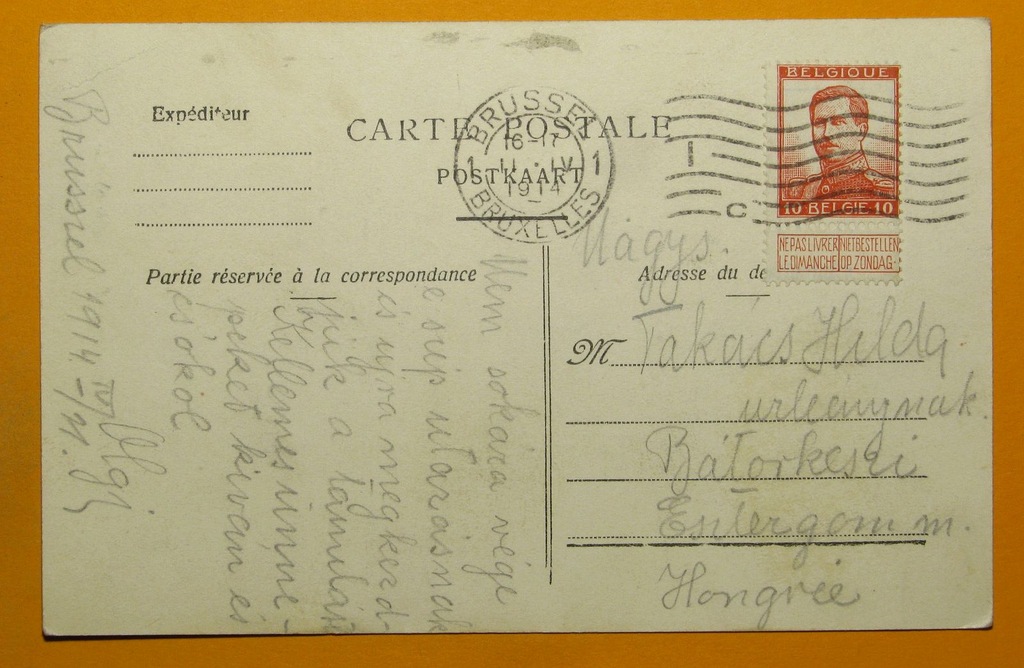 Expéditeur
CARTE POSTALE
POSTKAART
BRUSSEL
16-17
1 11·IV 1
1914
BRUXELLES
C
BELGIQUE
10 BELGIE 10
NE PAS LIVRER NIET BESTELLEN
LE DIMANCHE OP ZONDAG
Partie réservée à la correspondance
Adresse du de
Brüssel 1914 IV/11.
Olgi
Nem sokára vége
e szép utazásnak
és ujra megkezd-
jük a tanulást
Kellemes ünne-
peket kiván és
csókol
Nagys.
M Takács Hilda
urleánynak.
Bátorkeszi
Esztergom m.
Hongrie